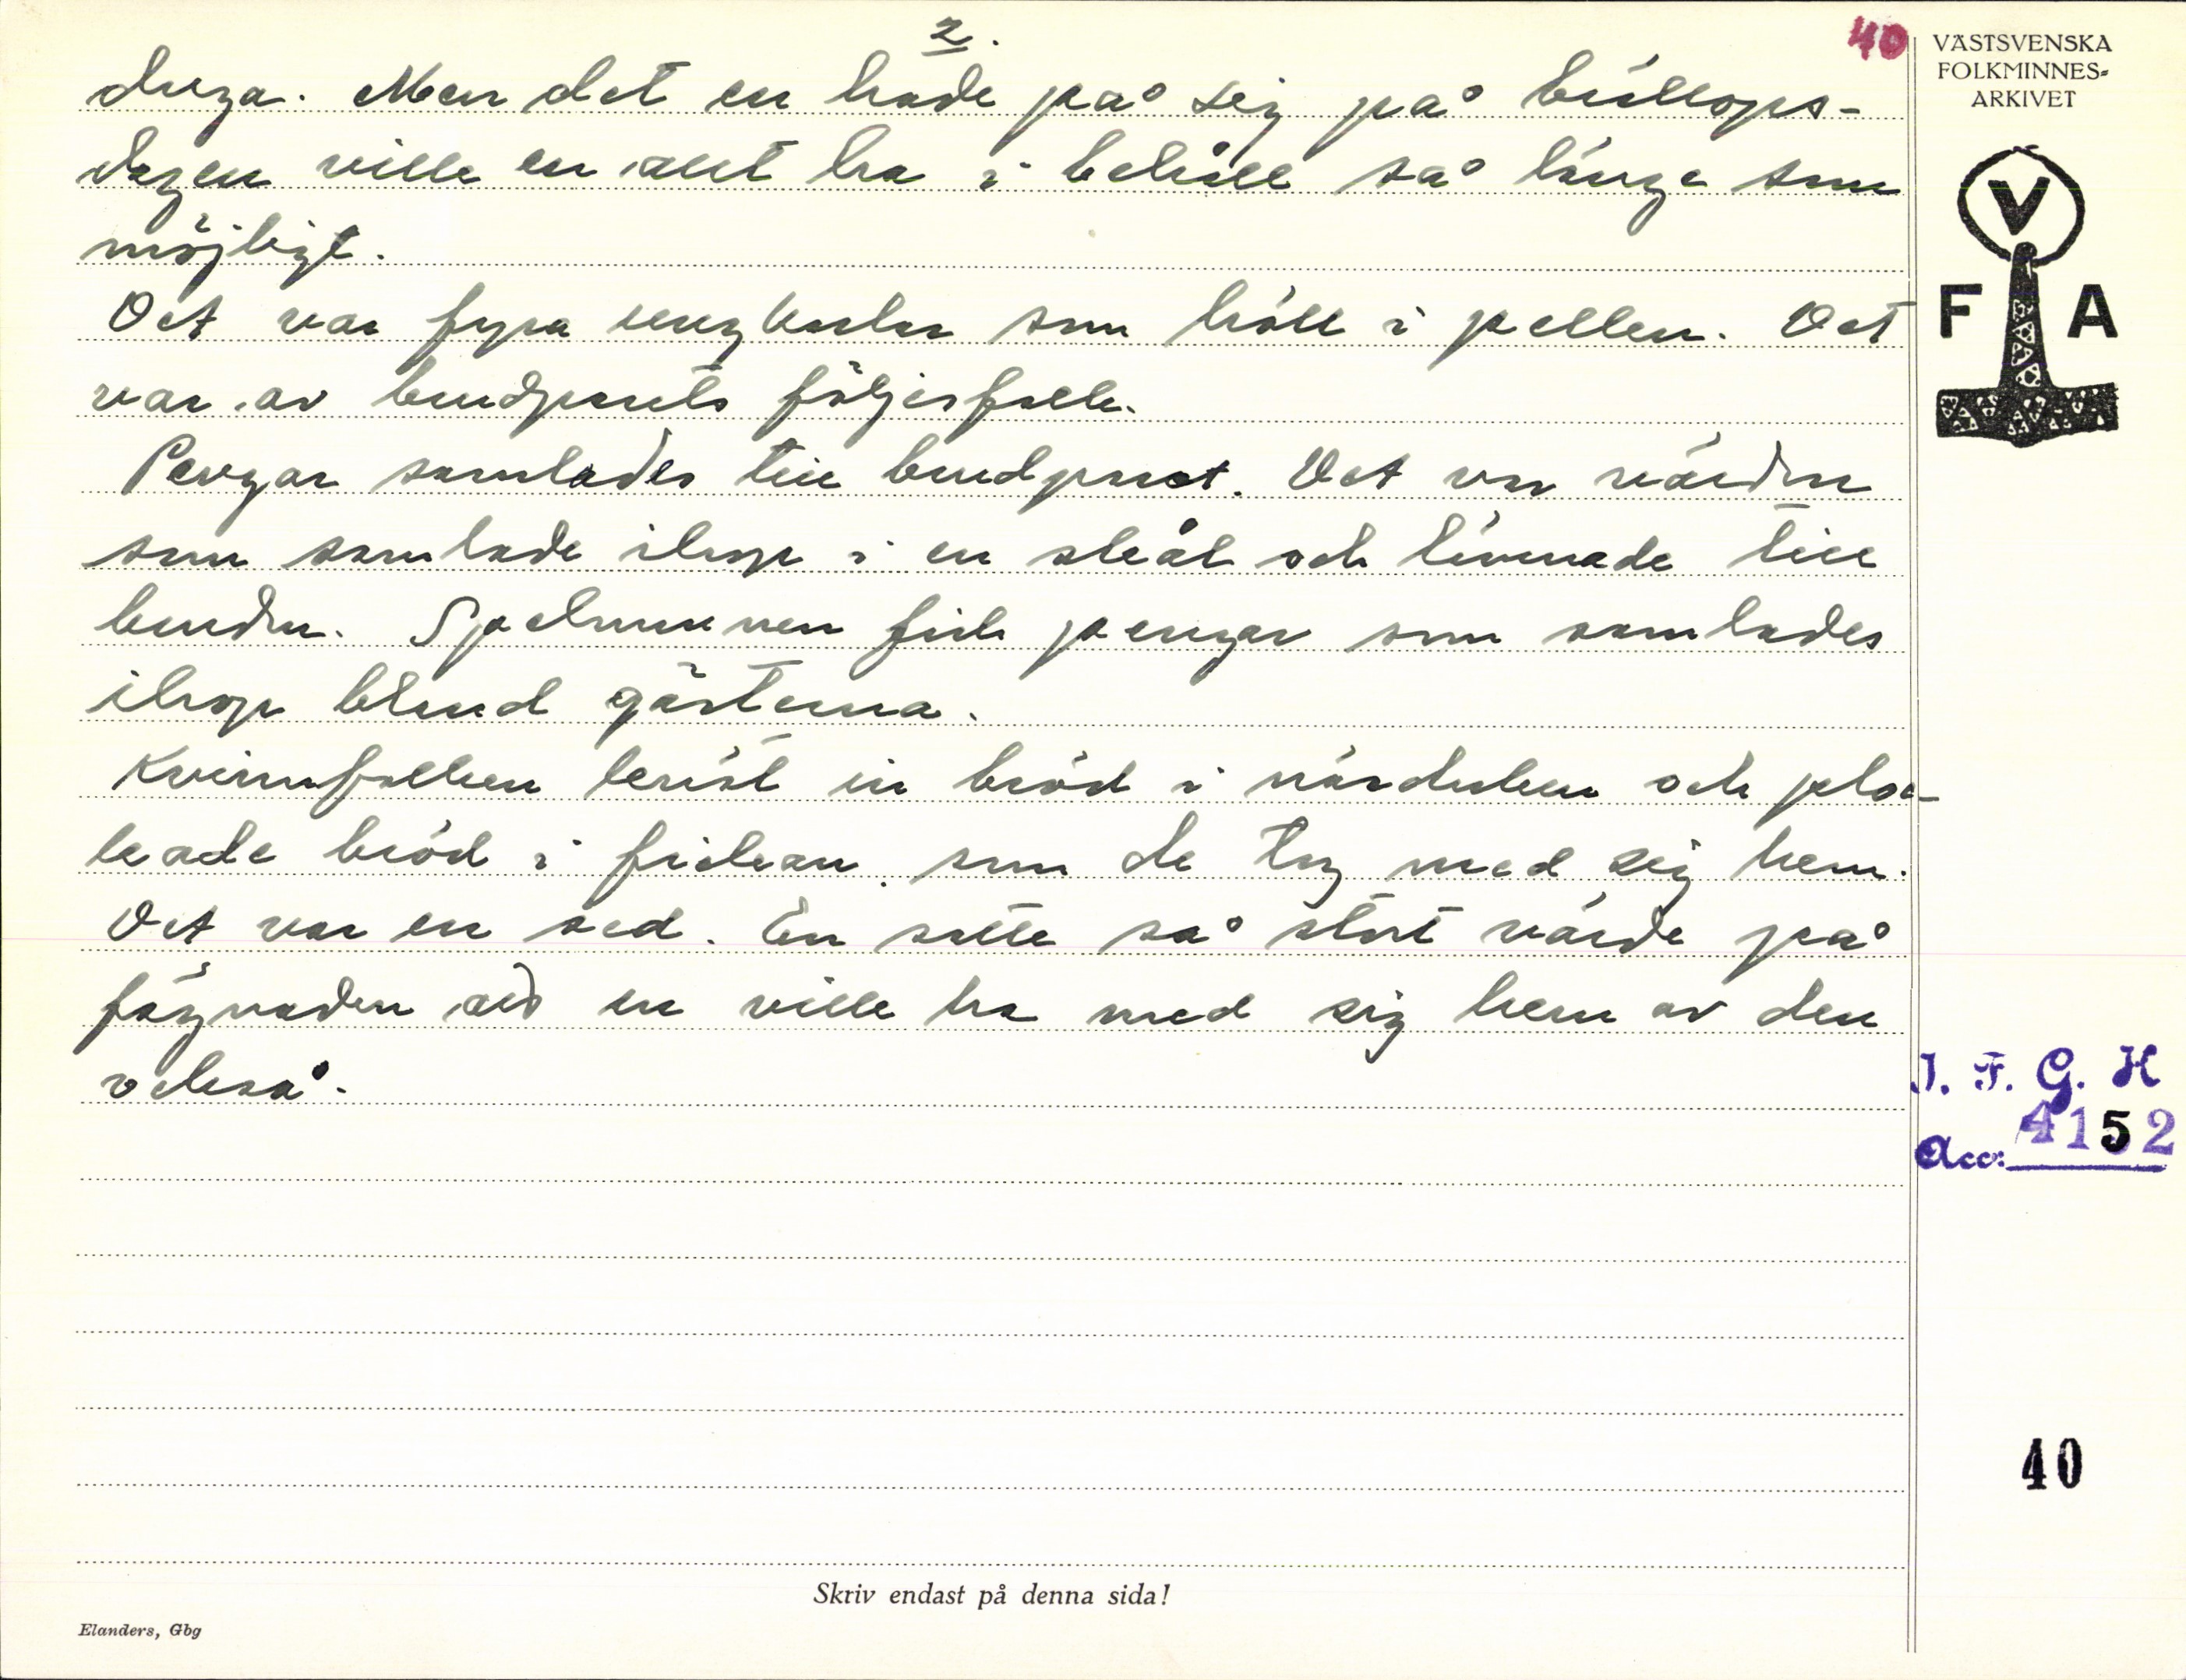 2.
40
duga. Men det en hade på sig på bröllops-
dagen ville en allt ha i behåll så länge som
möjligt.
Det var fyra ungkarlar som höll i pellen. Det
var av brudparets följesfolk.
Pengar samlades till brudparet. Det var värden
som samlade ihop i en skål och lämnade till
bruden. Spelmannen fick pengar som samlades
ihop bland gästerna.
Kvinnfolken bröt in bröd i näsduken och plo-
ckade bröd i fickan som de tog med sig hem.
Det var en sed. En satte så stort värde på
fägnaden att en ville ha med sig hem av den
också.
VÄSTSVENSKA
FOLKMINNES-
ARKIVET
V
F A
I. F. G. H
Acc: 4152
40
Skriv endast på denna sida!
Elanders, Gbg